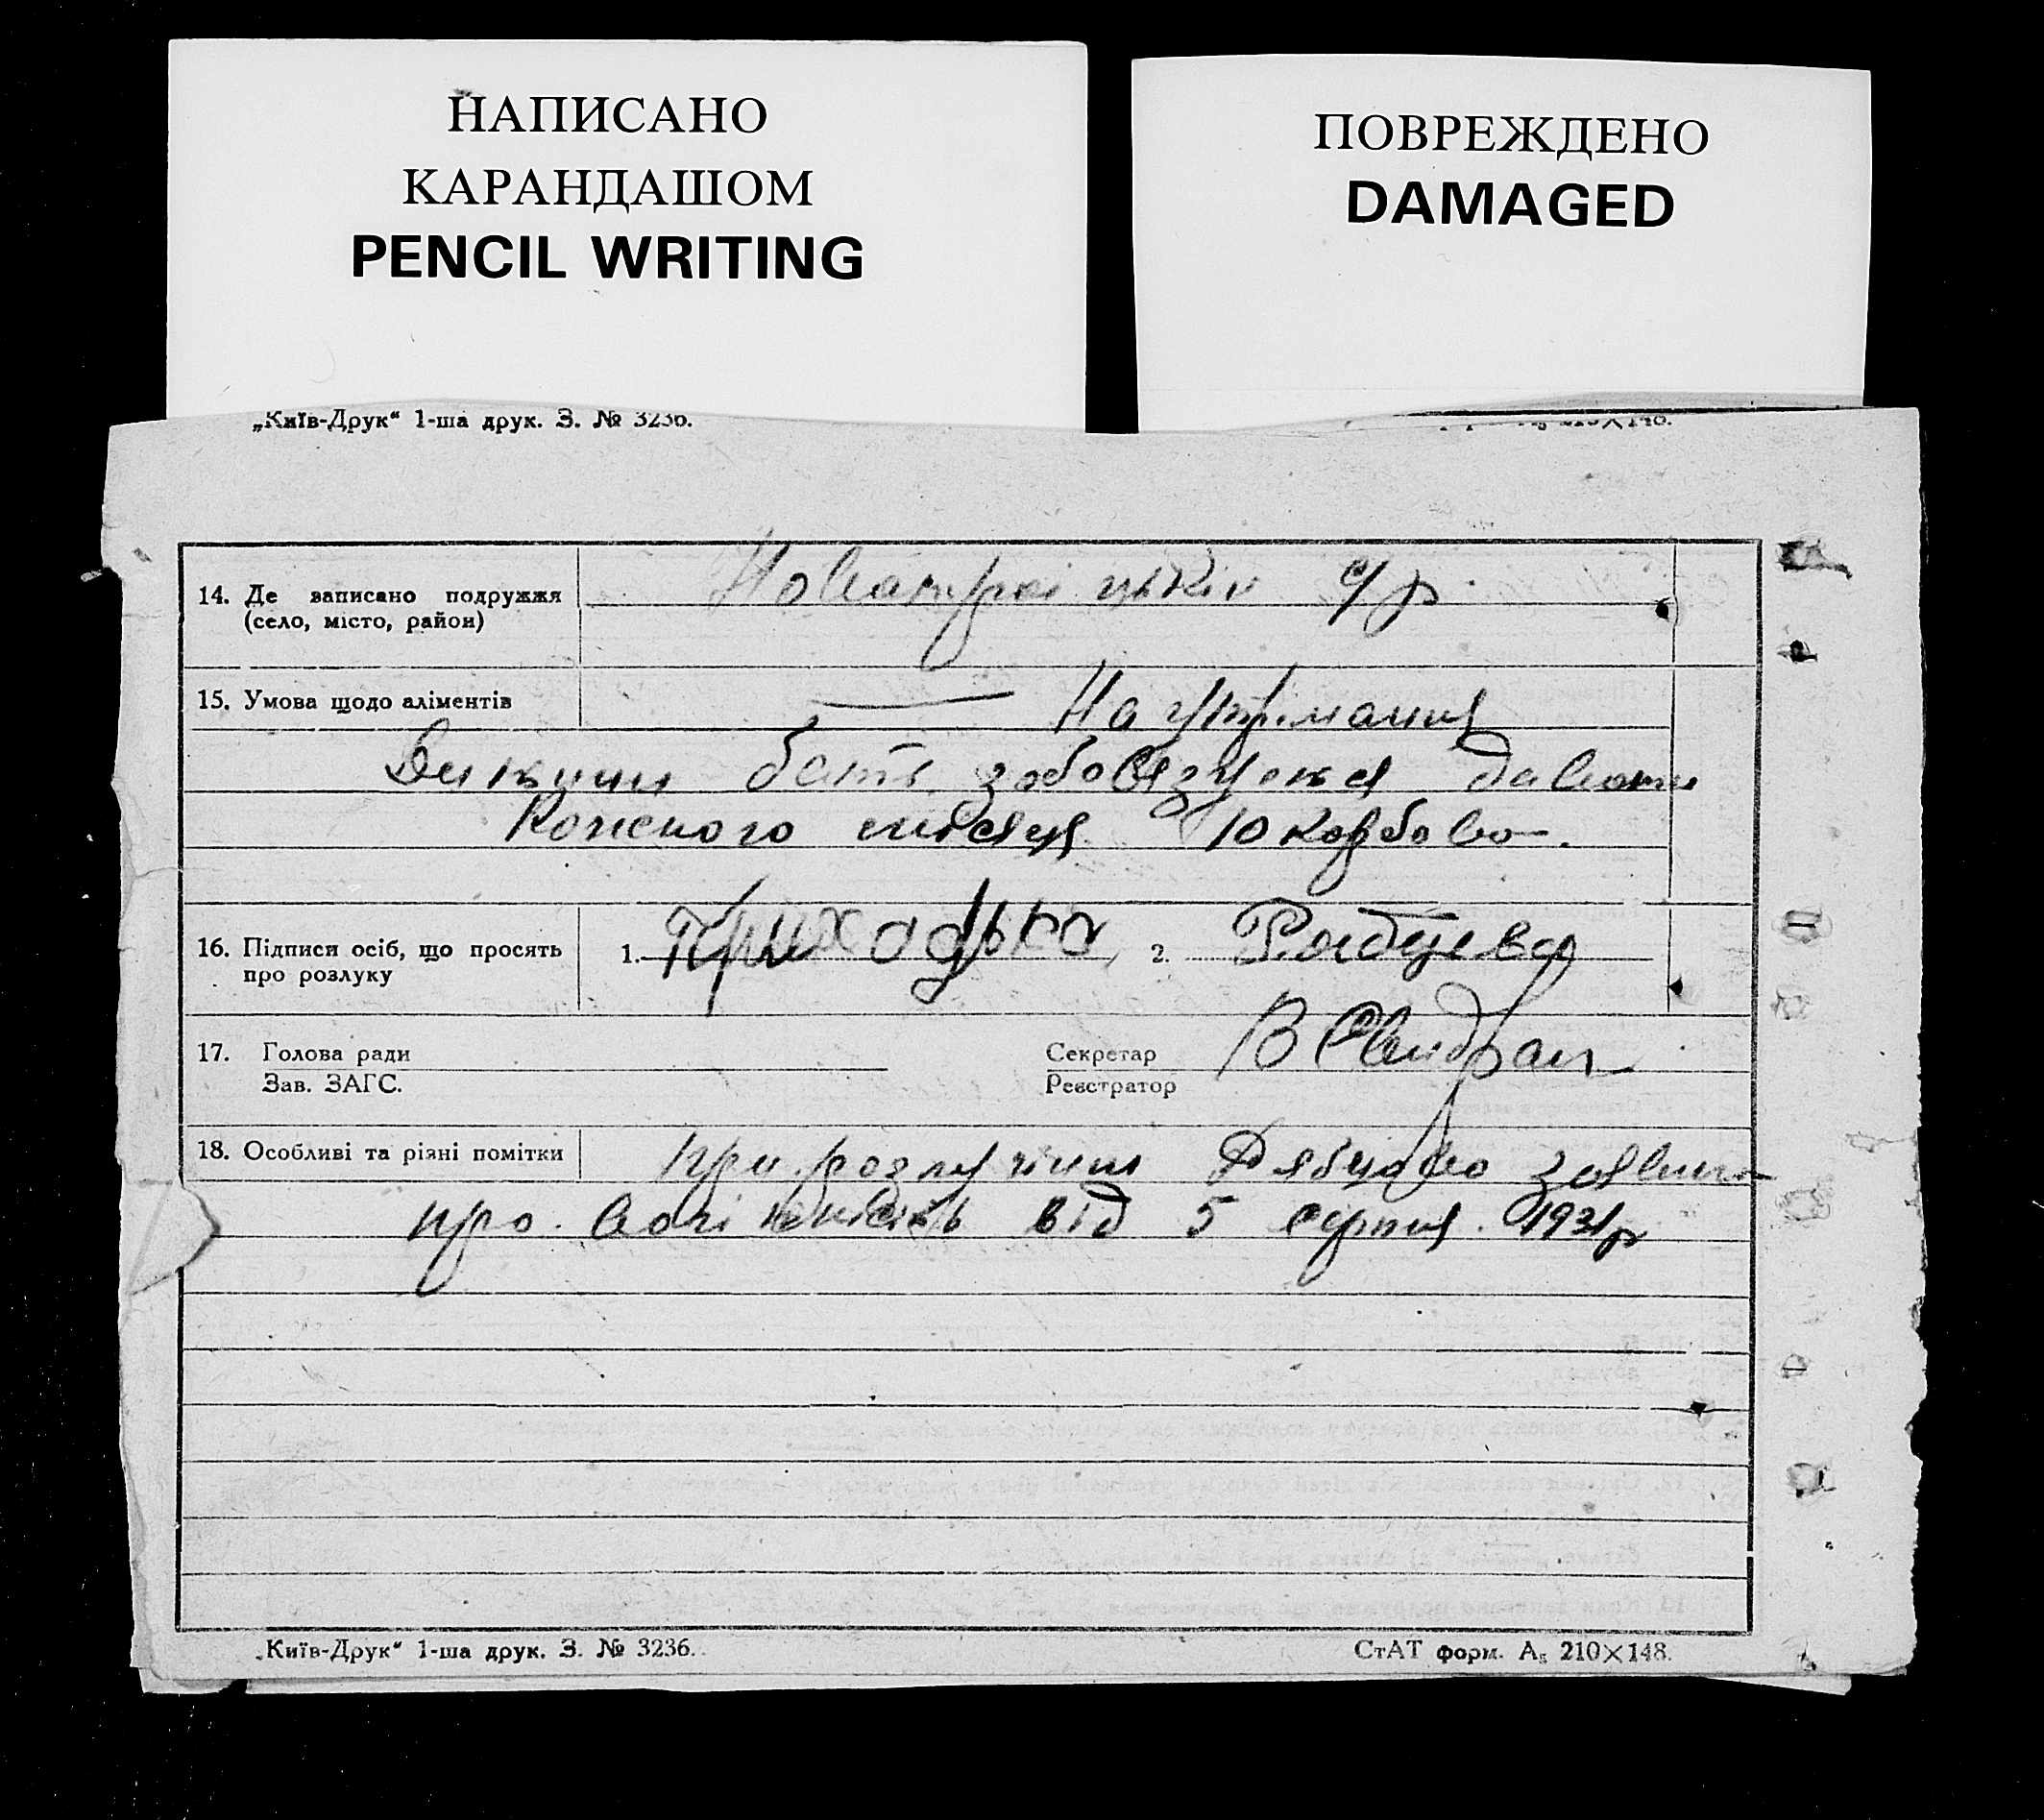 НАПИСАНО
КАРАНДАШОМ
PENCIL WRITING
ПОВРЕЖДЕНО
DAMAGED
„Київ-Друк“ 1-ша друк. З. № 3236.
210×148.
14. Де записано подружжя
(село, місто, район)
с/р.
15. Умова щодо аліментів
— На утримання
бать. давати
Кожного місяця 10 карбово—.
16. Підписи осіб, що просять
про розлуку
1. Приходько 2. Рабцева
17. Голова ради
Зав. ЗАГС.
Секретар
Реєстратор
В
18. Особливі та різні помітки
при
про. від 5 серпня. 1931р
„Київ-Друк“ 1-ша друк. З. № 3236.
СтАТ форм. А₅ 210×148.